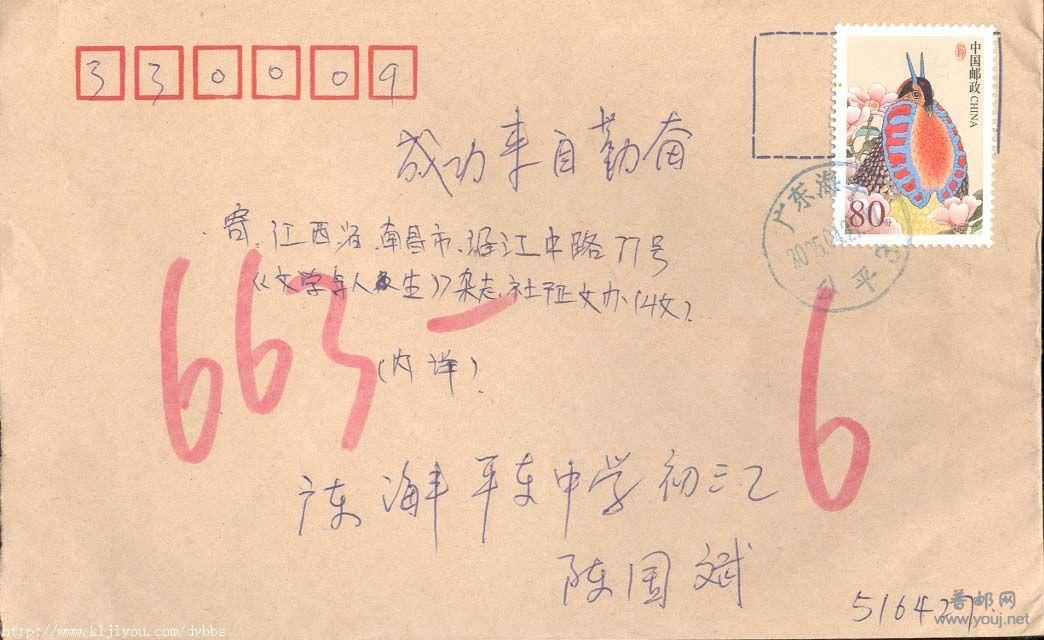 330009
中国邮政 CHINA
80分
成功来自勤奋
广东海
寄.江西省.南昌市.沿江中路77号
《文学与人生》杂志.社征文办(收).
(内详).
663-6
广东 海丰 平东中学 初三乙
陈国斌
516427
普邮网
www.youj.net
http://www.kljiyou.com/dvbbs